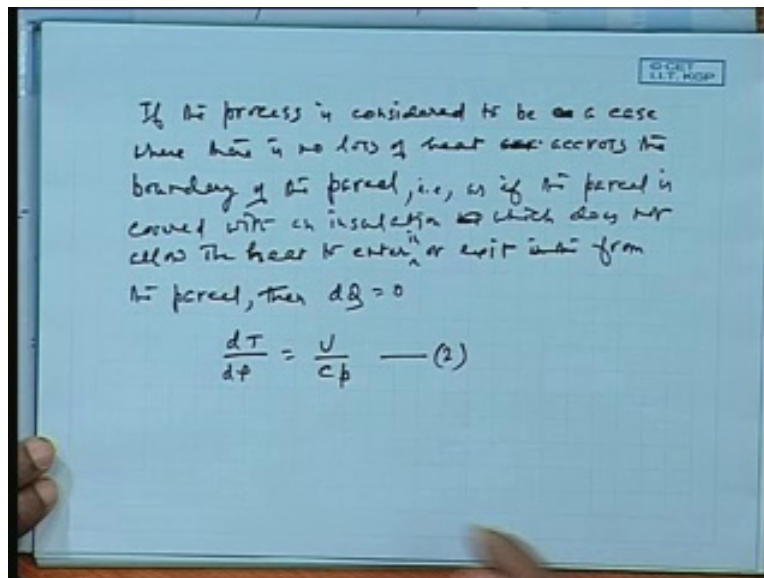 © CET
I.I.T. KGP
If the process is considered to be a case
where there is no loss of heat accross the
boundary of the parcel, i.e, as if the parcel is
covered with an insulation which does not
allow the heat to enter in or exit from
the parcel, then dQ = 0
dT/dp = V/Cp —— (2)